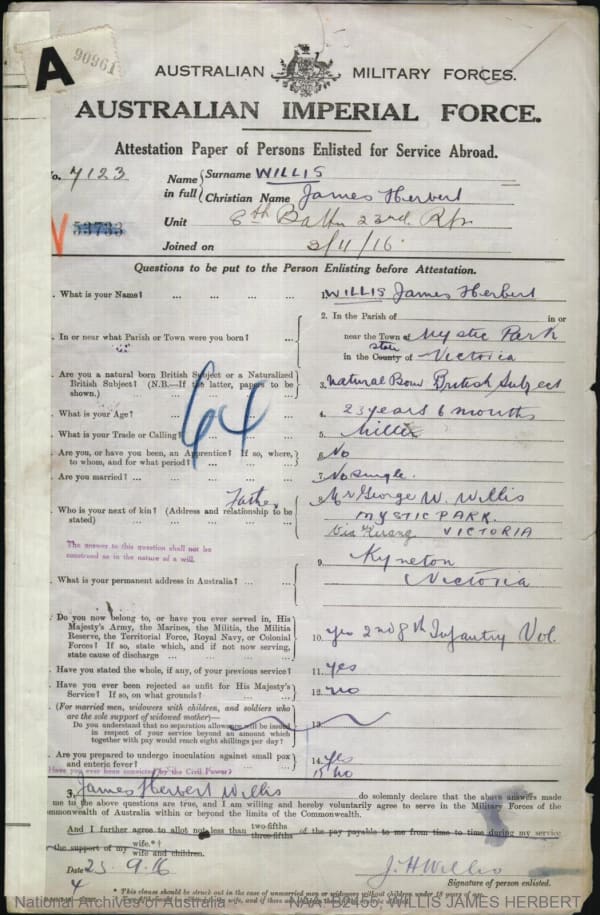 A
90961
AUSTRALIAN MILITARY FORCES.
AUSTRALIAN IMPERIAL FORCE.
Attestation Paper of Persons Enlisted for Service Abroad.
o. 7123
Name in full { Surname WILLIS
Christian Name James Herbert
Unit 8th Battn 23rd Rfts
53733
Joined on 2/11/16.
Questions to be put to the Person Enlisting before Attestation.
. What is your Name? ... ... ... ... 1. WILLIS James Herbert
2. In the Parish of in or
. In or near what Parish or Town were you born? ... near the Town of Mystic Park
in the County of Victoria
. Are you a natural born British Subject or a Naturalized
British Subject? (N.B.—If the latter, papers to be
shown.) ... ... ... ... 3. Natural Born British Subject
. What is your Age? ... ... ... ... 4. 23 years 6 months
. What is your Trade or Calling? ... ... ... 5. Miller
. Are you, or have you been, an Apprentice? If so, where,
to whom, and for what period? ... ... ... 6. No
. Are you married? ... ... ... ... 7. No single.
Father
. Who is your next of kin? (Address and relationship to be
stated) ... ... ... ... 8. Mr George W. Willis
MYSTIC PARK.
Via Kerang VICTORIA
The answer to this question shall not be
construed as in the nature of a will.
. What is your permanent address in Australia? ... ... 9. Kyneton
Victoria
. Do you now belong to, or have you ever served in, His
Majesty's Army, the Marines, the Militia, the Militia
Reserve, the Territorial Force, Royal Navy, or Colonial
Forces? If so, state which, and if not now serving,
state cause of discharge ... ... ... 10. yes 2nd 8th Infantry Vol.
. Have you stated the whole, if any, of your previous service? 11. yes
. Have you ever been rejected as unfit for His Majesty's
Service? If so, on what grounds? ... ... 12. no
. (For married men, widowers with children, and soldiers who
are the sole support of widowed mother)—
Do you understand that no separation allowance will be issued
in respect of your service beyond an amount which
together with pay would reach eight shillings per day? 13.
. Are you prepared to undergo inoculation against small pox
and enteric fever? ... ... ... ... 14. yes
Have you ever been convicted by the Civil Power? 15 no
64
I, James Herbert Willis do solemnly declare that the above answers made
me to the above questions are true, and I am willing and hereby voluntarily agree to serve in the Military Forces of the
mmonwealth of Australia within or beyond the limits of the Commonwealth.
And I further agree to allot not less than two-fifths three-fifths of the pay payable to me from time to time during my service
the support of my wife.*†
wife and children.
Date 23.9.16
J.H Willis
Signature of person enlisted.
4
* This clause should be struck out in the case of unmarried men or widowers without children under 18 years of age.
National Archives of Australia NAA: B2455, WILLIS JAMES HERBERT